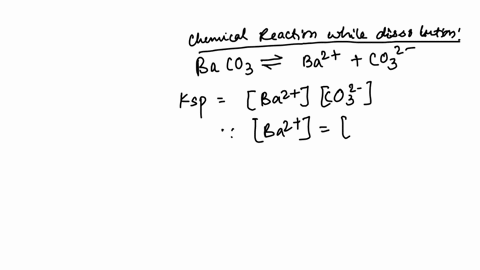 Chemical Reaction while
BaCO3 ⇌ Ba2+ + CO3 2-
Ksp = [Ba2+] [CO3 2-]
∵ [Ba2+] = [